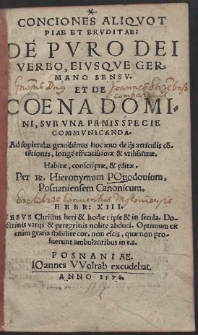 CONCIONES ALIQVOT
PIAE ET ERVDITAE:
DE PVRO DEI
VERBO, EIVSQVE GER-
MANO SENSV.
ET DE
COENA DOMI-
NI, SVB VNA PANIS SPECIE
COMMVNICANDA.
Ad sopiendas grauissimas hoc anno de ijs articulis cō-
tentiones, longè efficacissimæ & vtilissimæ.
Habitæ, conscriptæ, & editæ.
Per R. Hieronymum POgodouium,
Posnaniensem Canonicum.
HEBR: XIII.
IESVS Christus heri & hodie: ipse & in secula. Do-
ctrinis varijs & peregrinis nolite abduci. Optimum est
enim gratia stabilire cor, non escis, quæ non pro-
fuerunt ambulantibus in eis.
POSNANIAE.
IOannes VVolrab excudebat.
ANNO